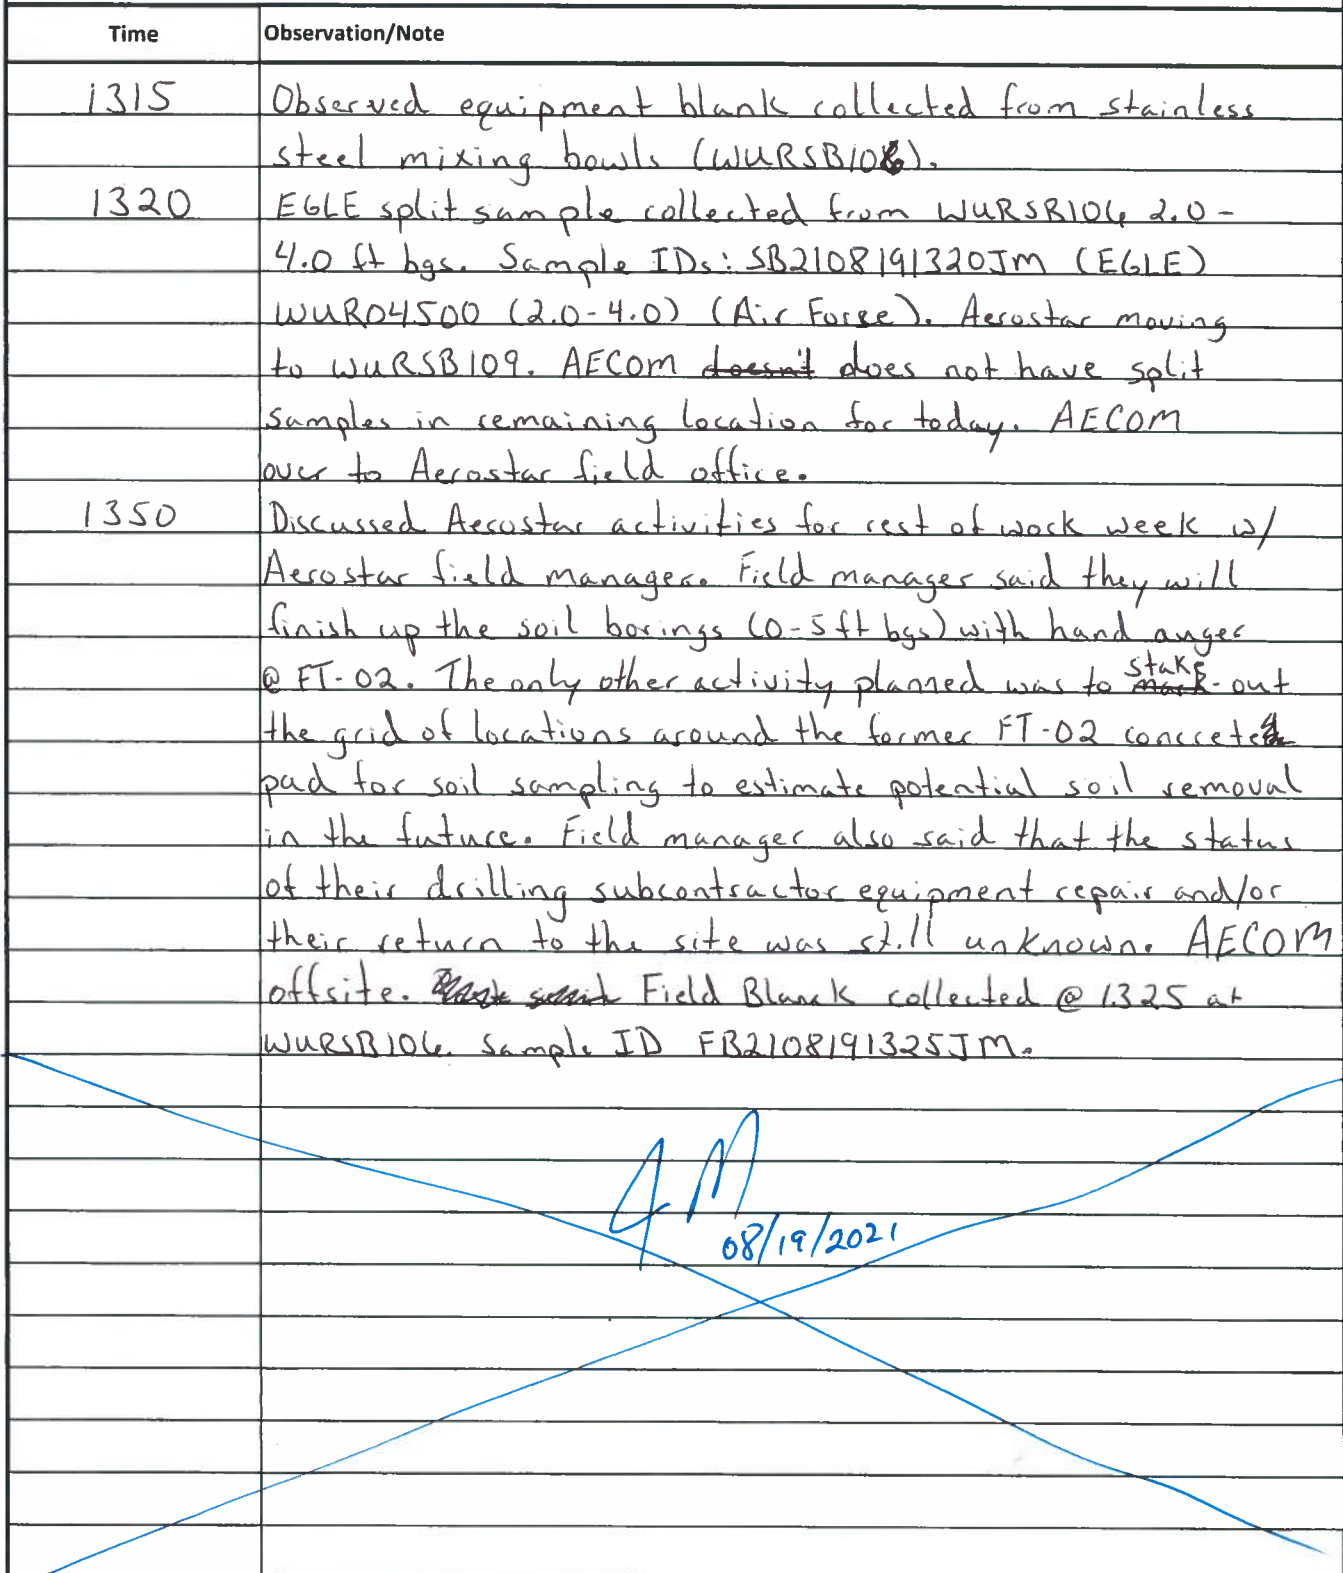 Time Observation/Note
1315 Observed equipment blank collected from stainless
steel mixing bowls (WURSB106).
1320 EGLE split sample collected from WURSB106 2.0-
4.0 ft bgs. Sample IDs: SB2108191320JM (EGLE)
WUR04500 (2.0-4.0) (Air Force). Aerostar moving
to WURSB109. AECOM doesn't does not have split
samples in remaining location for today. AECOM
over to Aerostar field office.
1350 Discussed Aerostar activities for rest of work week w/
Aerostar field manager. Field manager said they will
finish up the soil borings (0-5 ft bgs) with hand anger
@ FT-02. The only other activity planned was to mark stake out
the grid of locations around the former FT-02 concrete
pad for soil sampling to estimate potential soil removal
in the future. Field manager also said that the status
of their drilling subcontractor equipment repair and/or
their return to the site was still unknown. AECOM
offsite. Field Blank collected @ 1325 at
WURSB106. Sample ID FB2108191325JM.
JM
08/19/2021